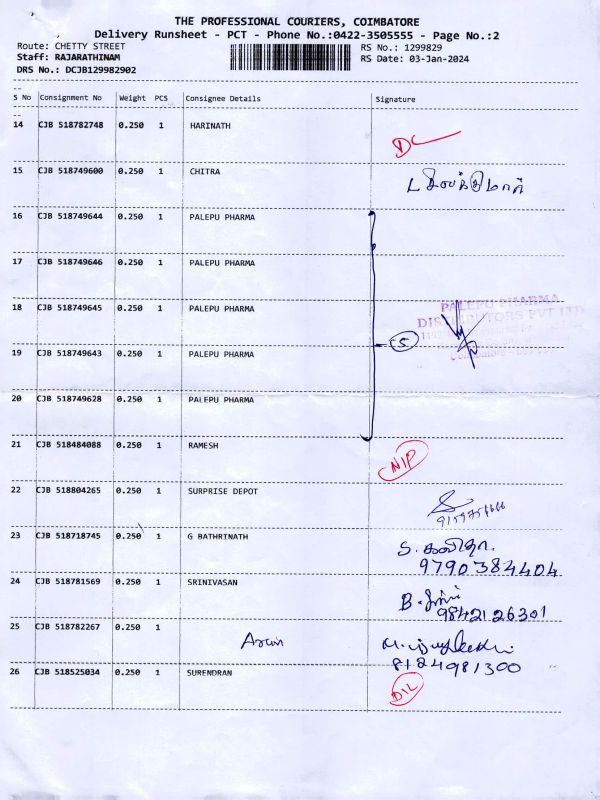 THE PROFESSIONAL COURIERS, COIMBATORE
Delivery Runsheet - PCT - Phone No.:0422-3505555 - Page No.:2
Route: CHETTY STREET RS No.: 1299829
Staff: RAJARATHINAM RS Date: 03-Jan-2024
DRS No.: DCJB129982902
S No Consignment No Weight PCS Consignee Details Signature
14 CJB 518782748 0.250 1 HARINATH
15 CJB 518749600 0.250 1 CHITRA
16 CJB 518749644 0.250 1 PALEPU PHARMA
17 CJB 518749646 0.250 1 PALEPU PHARMA
18 CJB 518749645 0.250 1 PALEPU PHARMA
PALEPU PHARMA
DISTRIBUTORS PVT LTD
5
19 CJB 518749643 0.250 1 PALEPU PHARMA
20 CJB 518749628 0.250 1 PALEPU PHARMA
21 CJB 518484088 0.250 1 RAMESH NIP
22 CJB 518804265 0.250 1 SURPRISE DEPOT
23 CJB 518718745 0.250 1 G BATHRINATH
9790384404
24 CJB 518781569 0.250 1 SRINIVASAN
9842126301
25 CJB 518782267 0.250 1
8124981300
26 CJB 518525034 0.250 1 SURENDRAN D/L